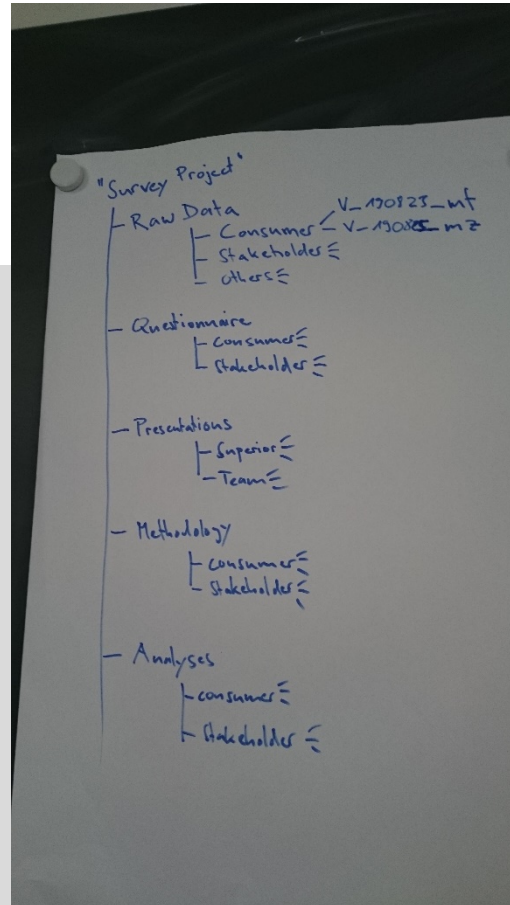 "Survey Project"
Raw Data
Consumer V_190823_mf
V_190825_mz
Stakeholder
others
Questionnaire
Consumer
Stakeholder
Presentations
Superior
Team
Methodology
consumer
Stakeholder
Analyses
consumer
Stakeholder